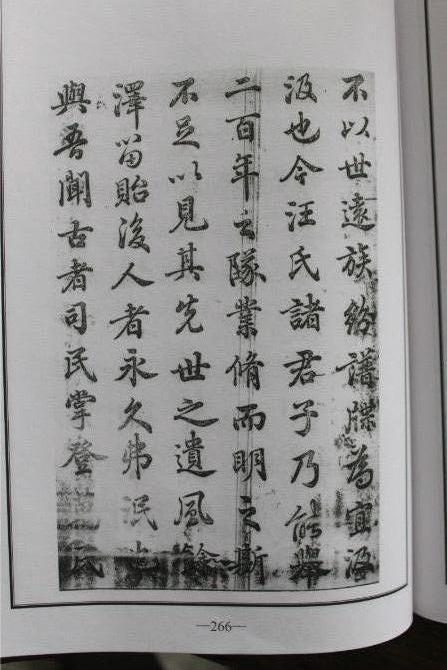 不以世遠族紛譜牒為宜汲
汲也今汪氏諸君子乃能舉
二百年之隊業脩而明之斯
不足以見其先世之遺風餘
澤留貽後人者永久弗泯也
與吾聞古者司民掌登萬民
—266—